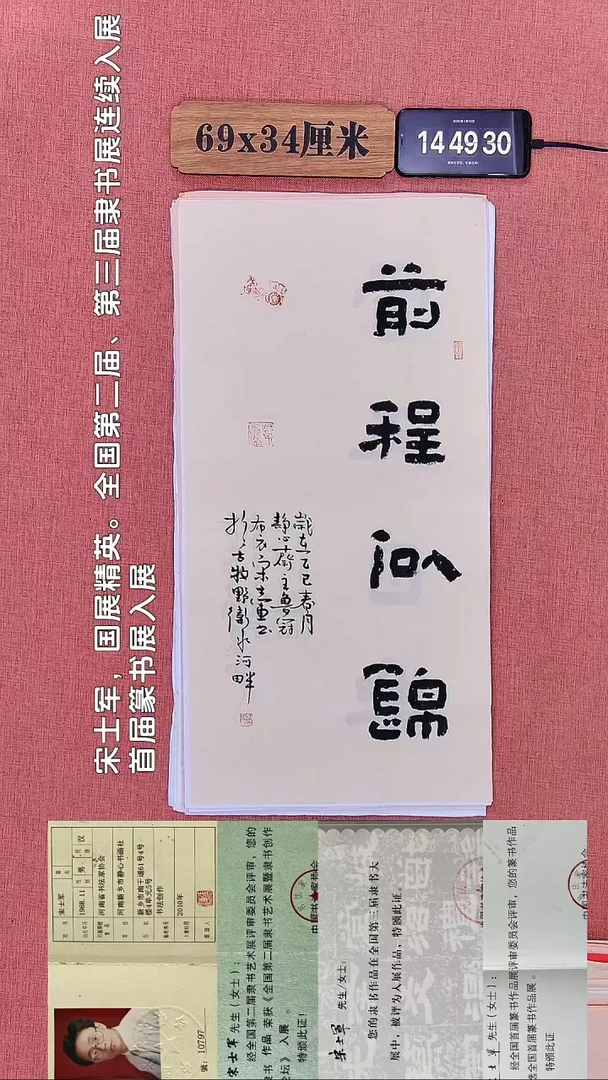 69x34厘米
14 49 30
宋士军，国展精英。全国第二届、第三届隶书展连续入展
首届篆书展入展
前程似錦
歲在乙巳春月
静心齋主
布衣宋士軍書
於古牧野衛水河畔
宋士军
1968.11
男
汉
河南省书法家协会
河南新乡市静心书画社
新乡市南干道61号4号
楼4单元5号
书法创作
2010年
号：10797
宋士军 先生（女士）：
经全国第二届隶书艺术展评审委员会评审，您的
隶书 作品 荣获《全国第二届隶书艺术展暨隶书创作
论坛》入展。
特颁此证！
宋士军 先生/女士：
您的隶书作品在全国第三届隶书大
展中，被评为入展作品，特颁此证。
士军 先生（女士）：
经全国首届篆书作品展评审委员会评审，您的篆书作品
全国首届篆书作品展。
特颁此证